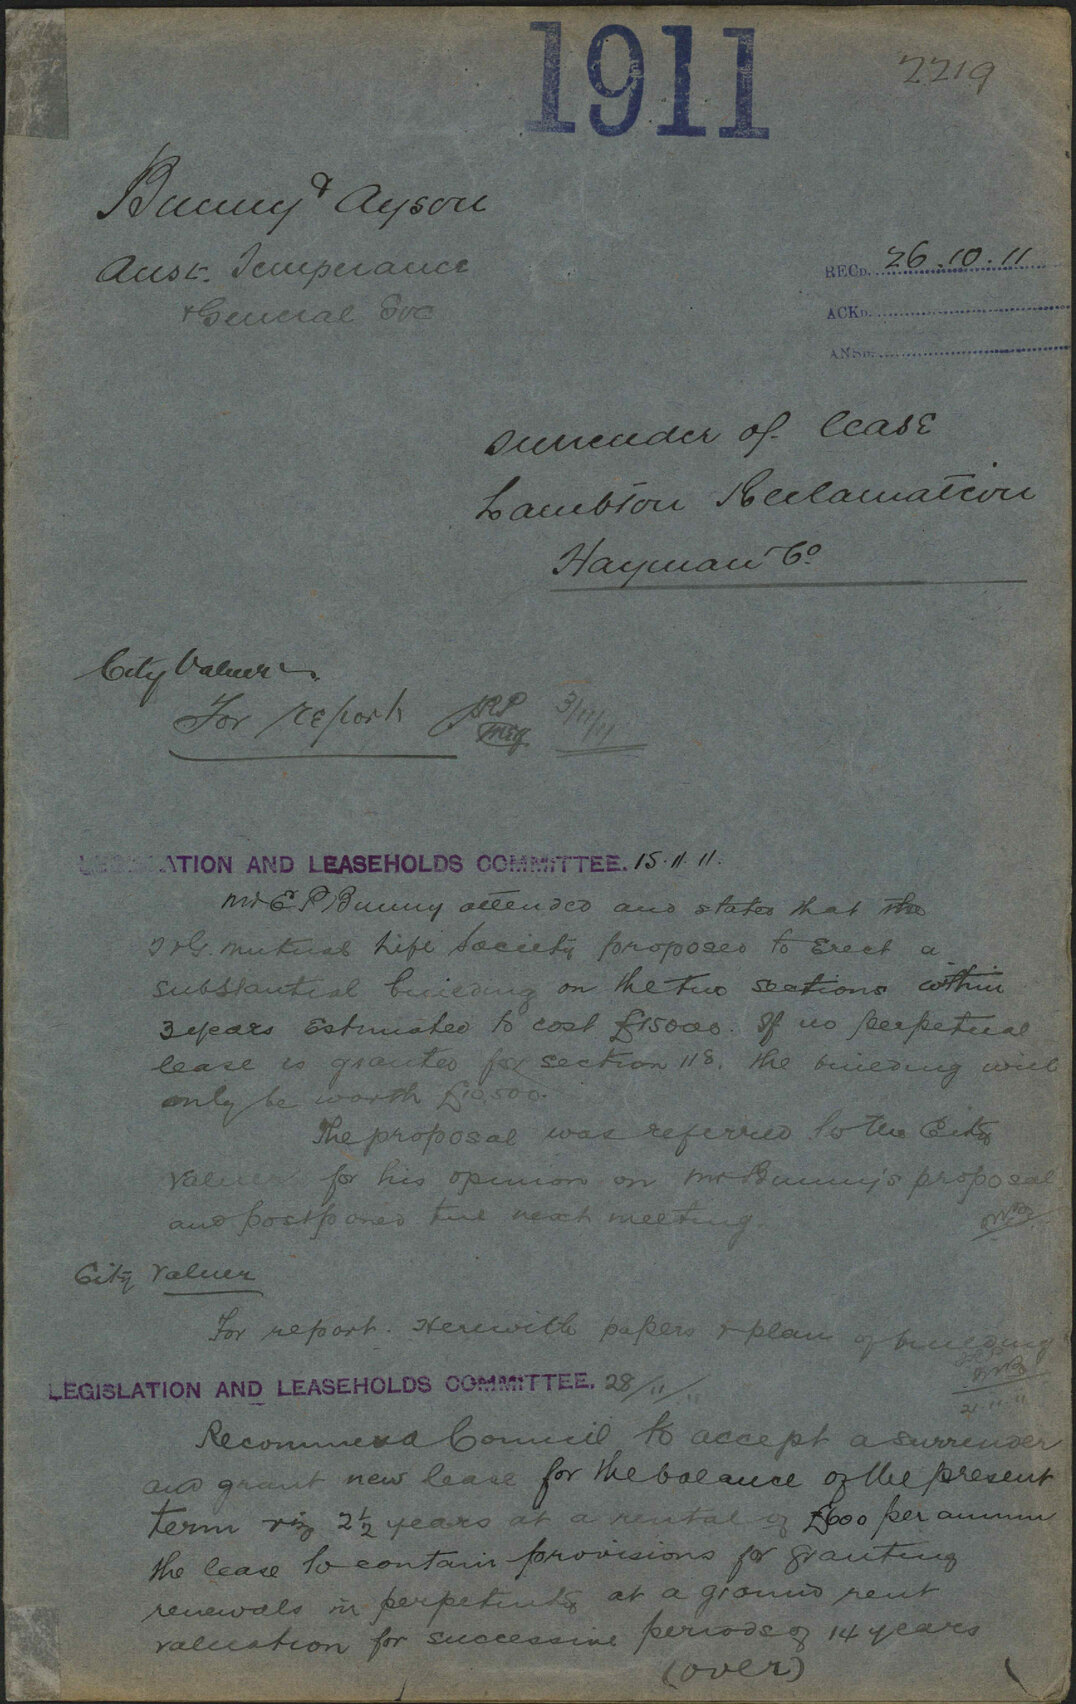 1911
2219
Bunny & Ayson
Aust. Temperance
& General Soc
RECD. 26.10.11
ACKD.
ANSD.
Surrender of lease
Lambton Reclamation
Hayman & Co
City Valuer
For report JRP 3/11/11
LEGISLATION AND LEASEHOLDS COMMITTEE. 15.11.11.
Mr E P Bunny attended and stated that the
T&G. mutual Life Society proposed to Erect a
substantial building on the two sections within
3 years Estimated to cost £15000. If no perpetual
lease is granted for section 118. the building will
only be worth £10,500.
The proposal was referred to the City
Valuer for his opinion on Mr Bunny's proposal
and postponed till next meeting.
City Valuer
For report. Herewith papers & plan of building
21.11.11
LEGISLATION AND LEASEHOLDS COMMITTEE. 28/11/11
Recommend Council to accept a surrender
and grant new lease for the balance of the present
term viz 2½ years at a rental of £600 per annum
the lease to contain provisions for granting
renewals in perpetuity at a ground rent
valuation for successive periods of 14 years
(over)